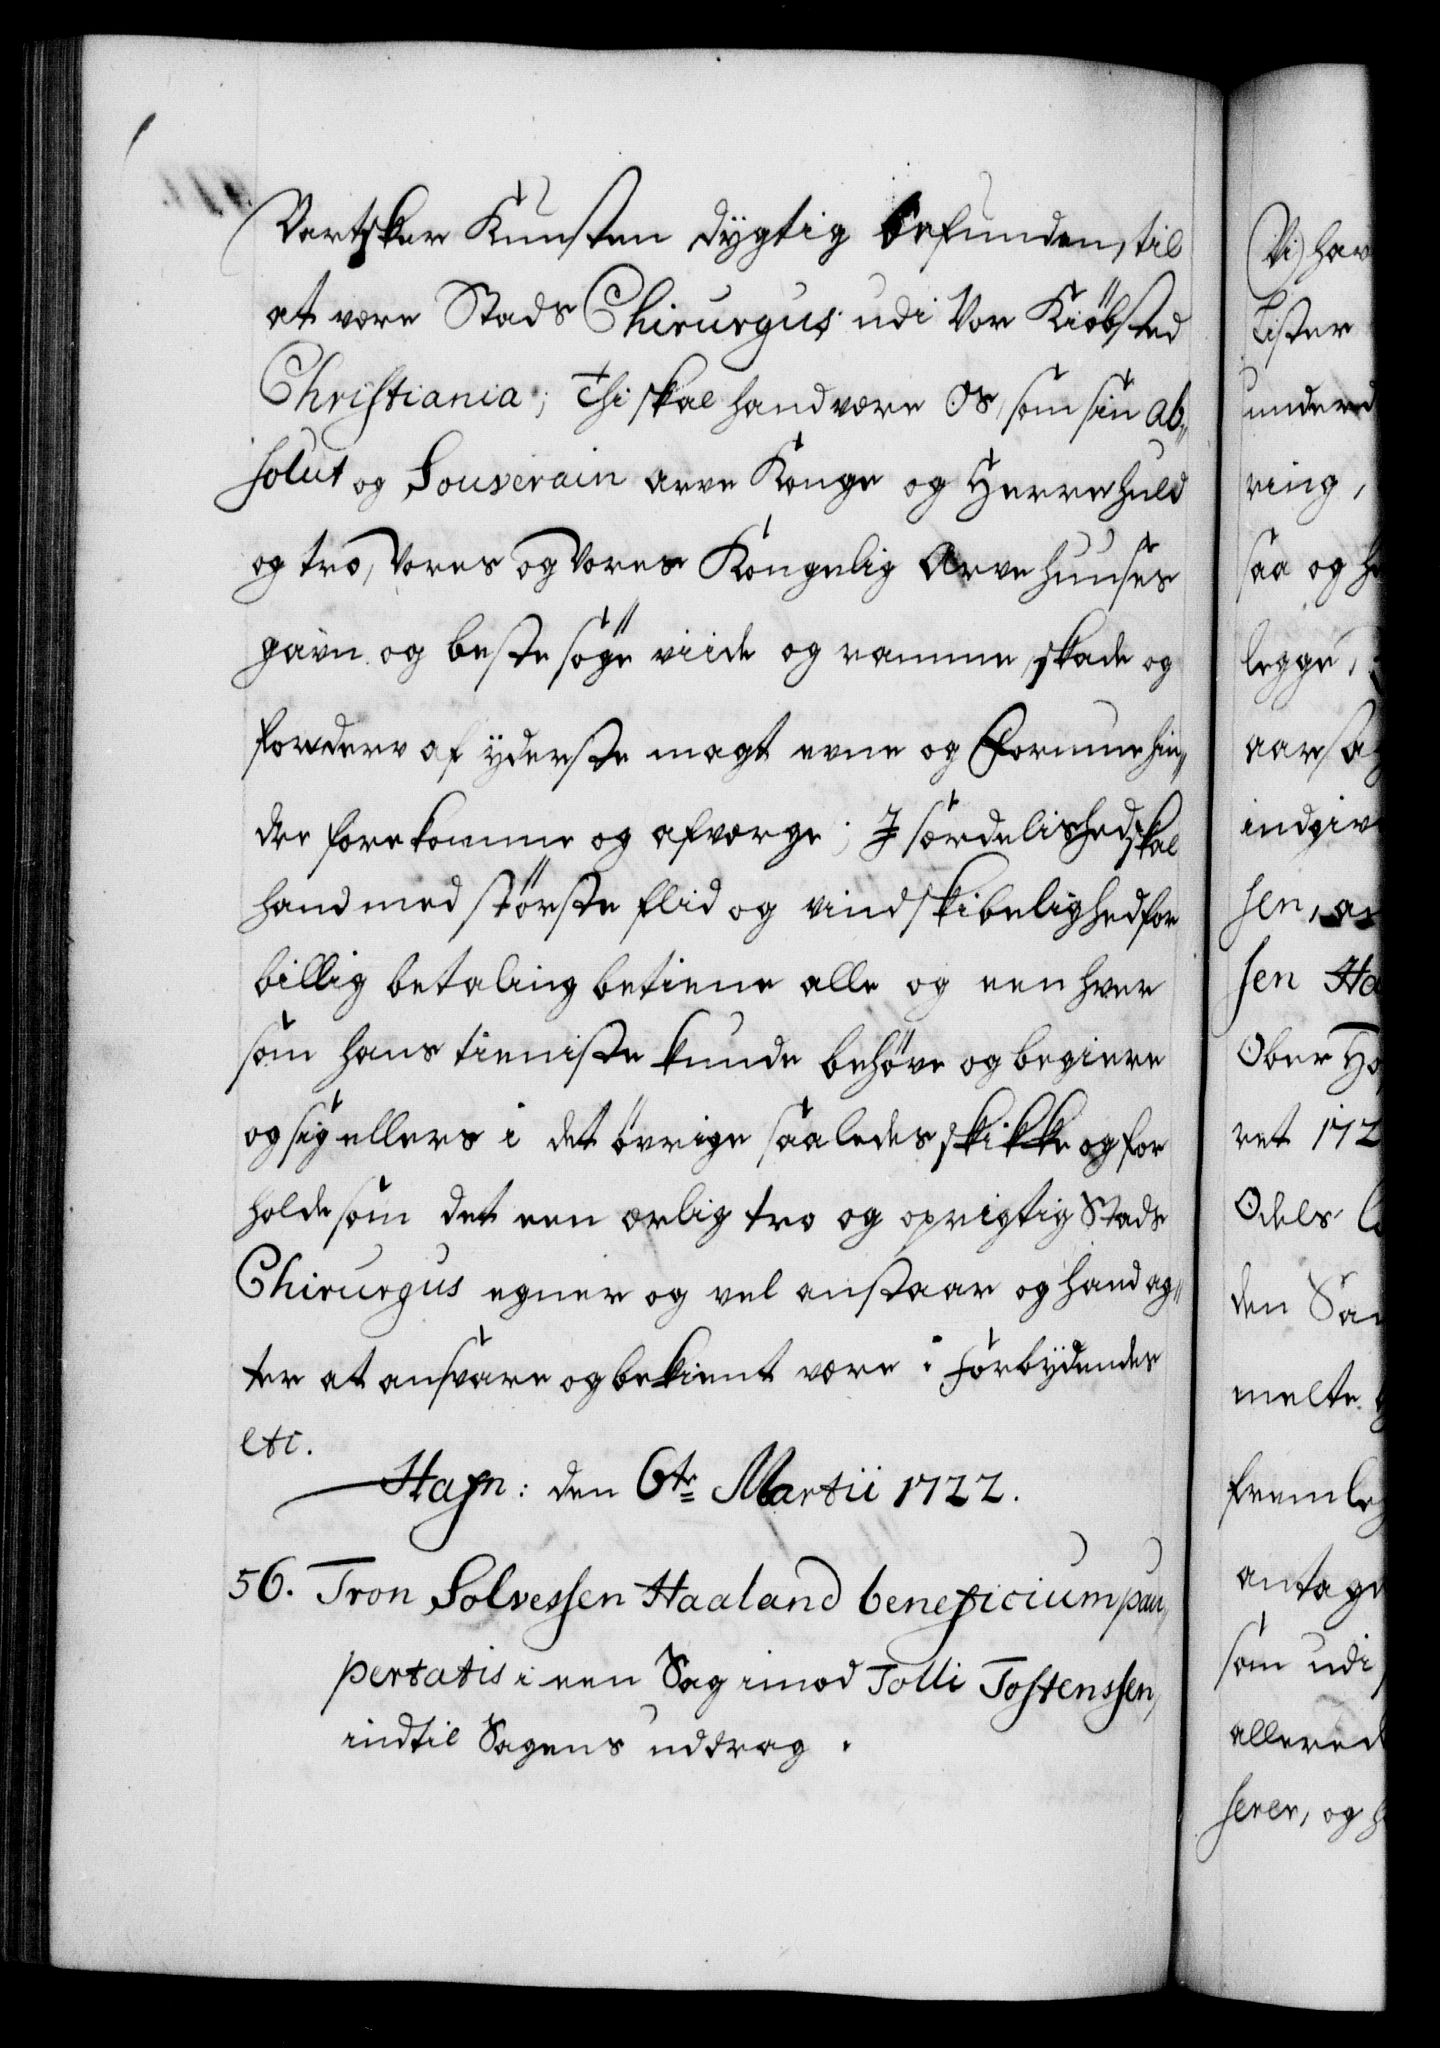 Bartsker Kunsten dygtig befunden, til
at være Stads Chirurgus udi Vor Kiøbsted
Christiania; Thi skal hand være Os, som sin ab„
solut og Souverain arve Konge og Herre huld
og tro, Vores og Vores Kongelig Arve Huuses
gavn og beste søge viide og ramme, skade og
forderv af yderste magt evne og Formue hin„
der forekomme og afværge; I særdelished skal
hand med største flid og vindskibelighed for
billig betaling betiene alle og een hver
som hans tieniste kunde behøve og begiere
og sig ellers i det øvrige saaledes skikke og for
holde som det een ærlig tro og oprigtig Stads
Chirurgus egner og vel anstaar og hand ag„
ter at ansvare og bekient være i forbydendes
etc.
Hafn: den 6te Martii 1722.
56. Tron Solvessen Haaland beneficium pau„
pertatis i een Sag imod Tolli Tostenssen,
indtil Sagens uddrag.
(Vi) hav
Lister
under
ring,
saa og h
legge,
aarsag
indgiv
sen, a
sen Ha
Ober Ho
ret 172
Odels
den Sa
melte
fremleg
antage
som udi
allered
serer, og h